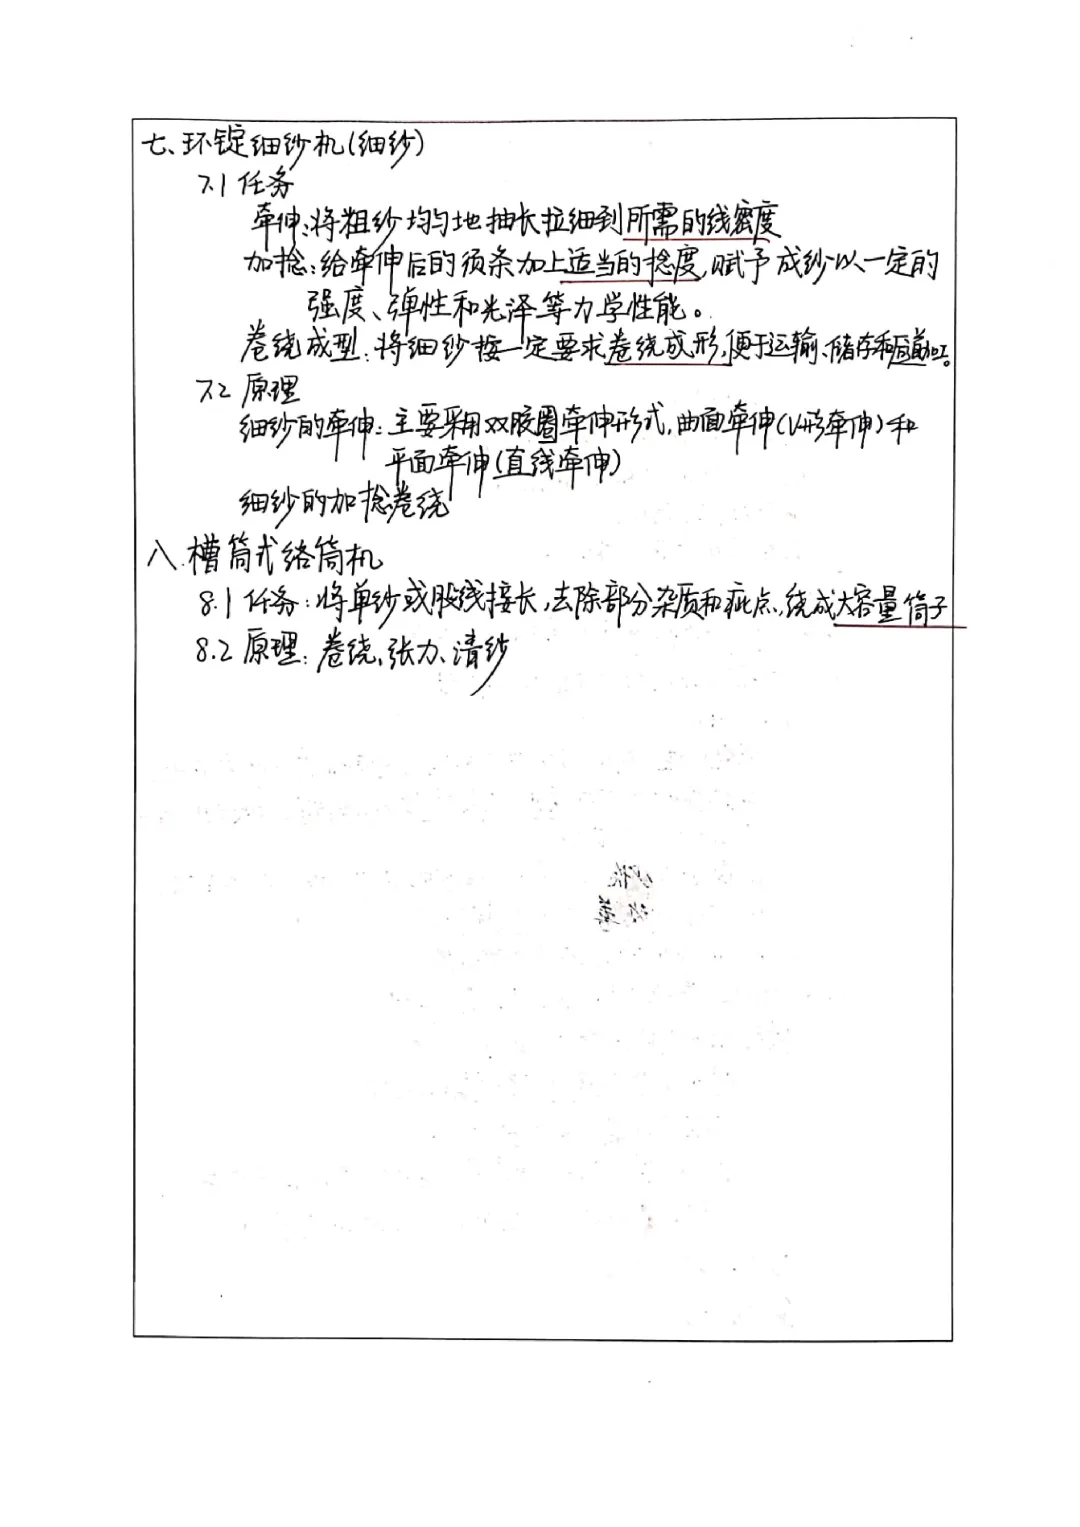 七、环锭细纱机(细纱)
7.1 任务
牵伸:将粗纱均匀地抽长拉细到所需的线密度
加捻:给牵伸后的须条加上适当的捻度,赋予成纱以一定的
强度、弹性和光泽等力学性能。
卷绕成型:将细纱按一定要求卷绕成形,便于运输、储存和后道加工。
7.2 原理
细纱的牵伸:主要采用双胶圈牵伸形式,曲面牵伸(V形牵伸)和
平面牵伸(直线牵伸)
细纱的加捻卷绕
八.槽筒式络筒机
8.1 任务:将单纱或股线接长,去除部分杂质和疵点,绕成大容量筒子
8.2 原理:卷绕、张力、清纱